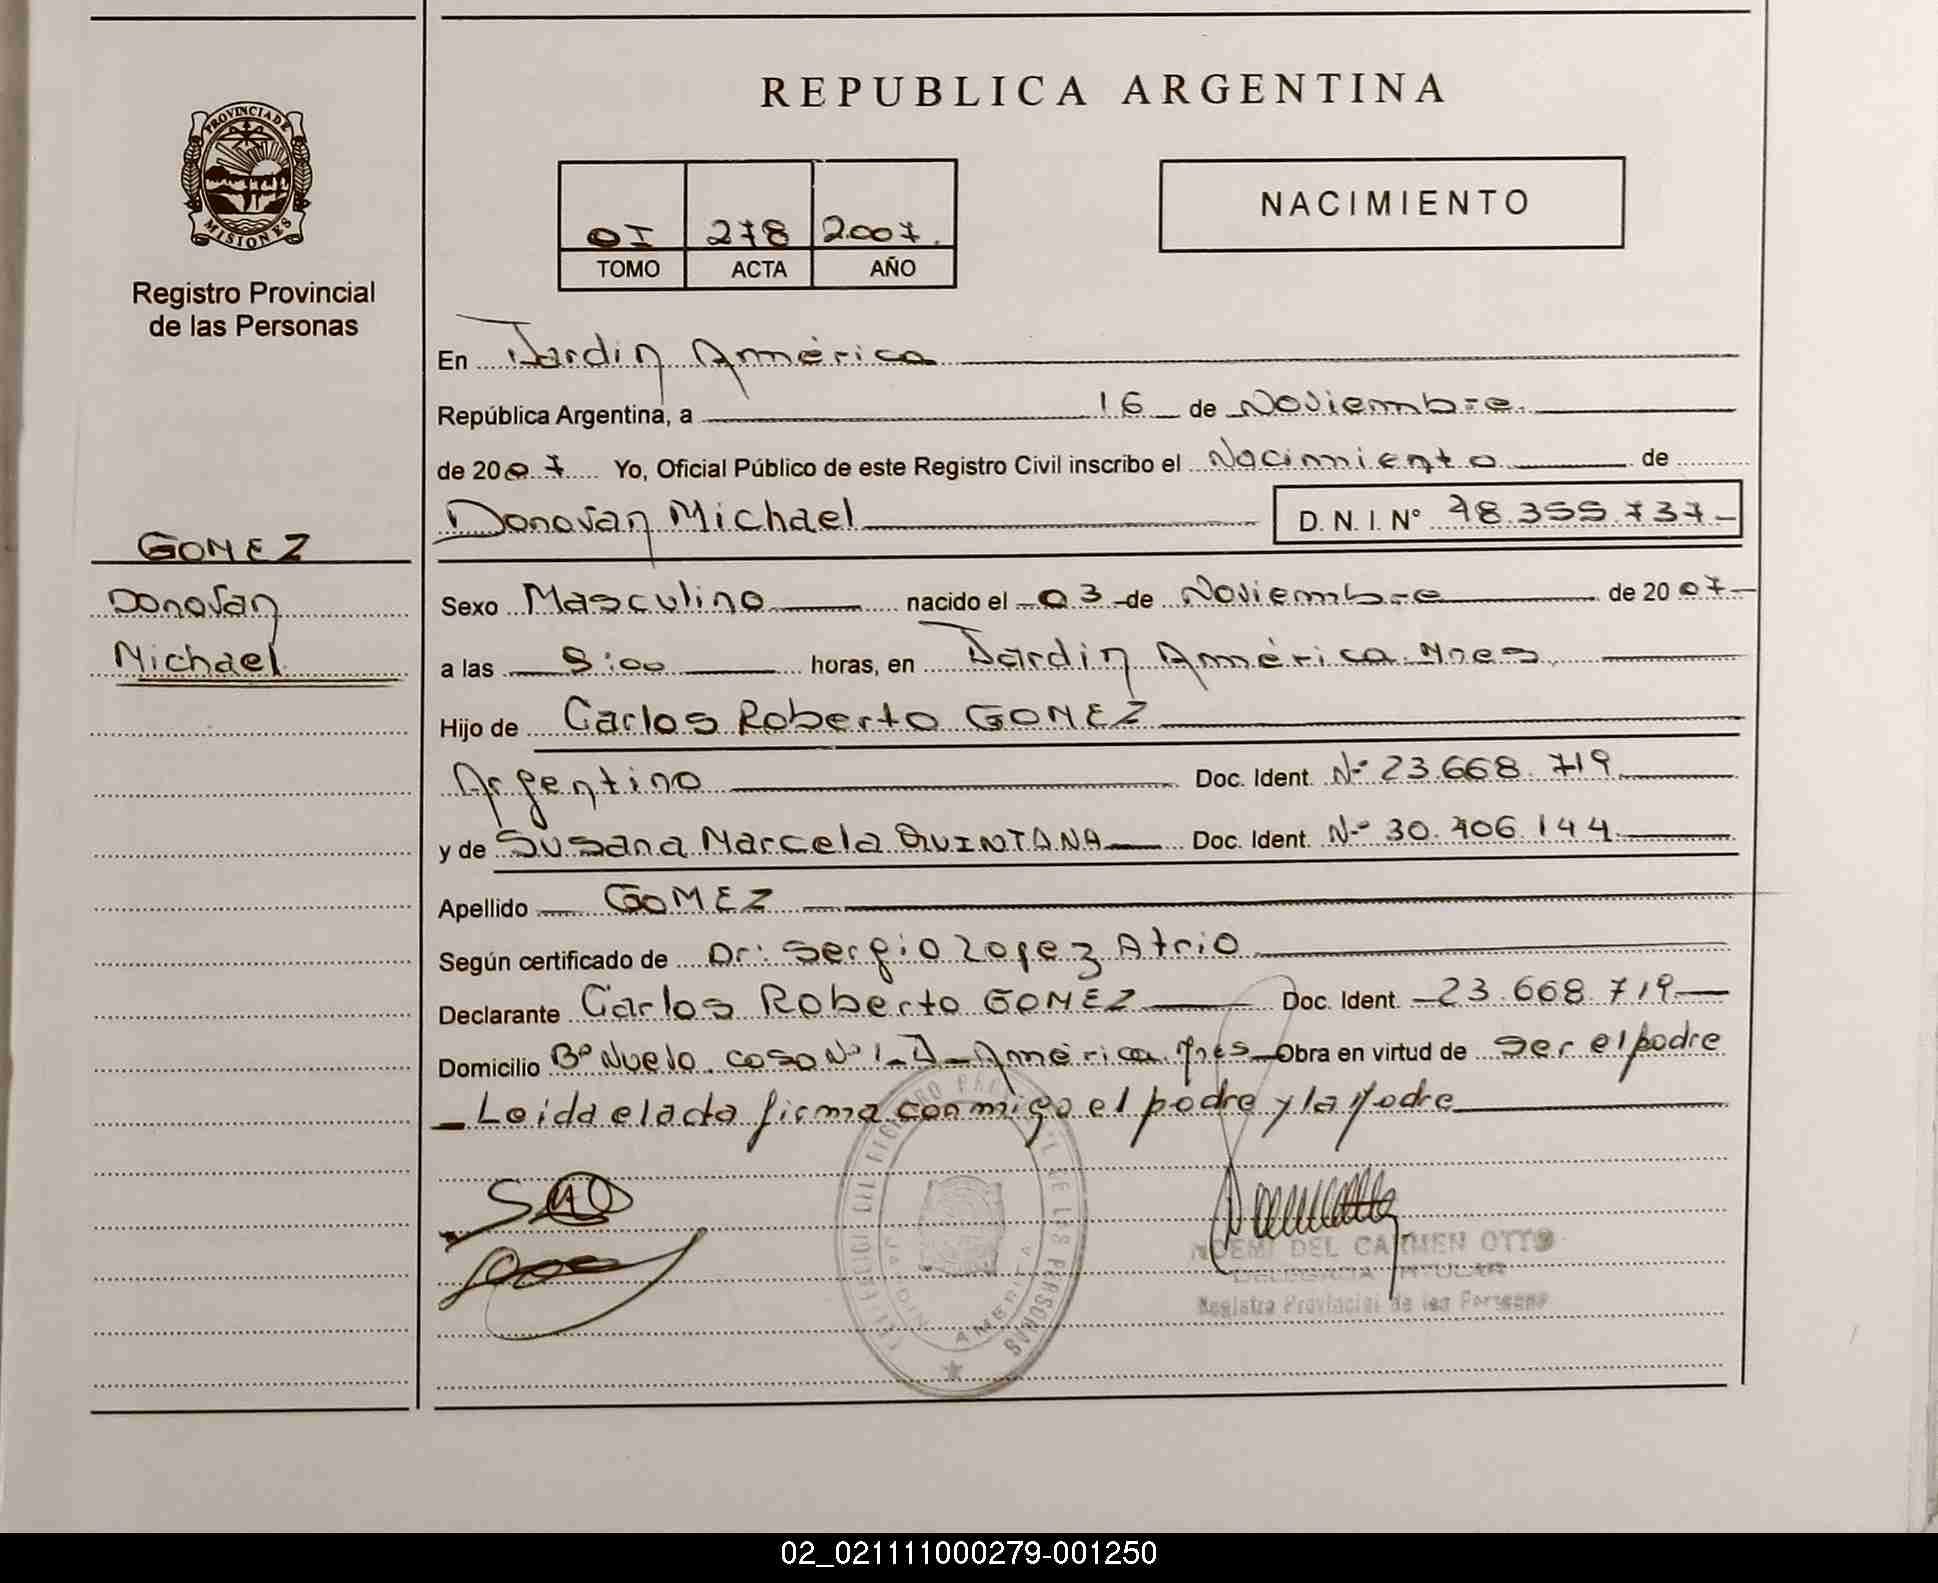 REPUBLICA ARGENTINA
PROVINCIA DE MISIONES
Registro Provincial
de las Personas
OI 278 2007.
TOMO ACTA AÑO
NACIMIENTO
En Jardin América
República Argentina, a 16 de Noviembre
de 2007 Yo, Oficial Público de este Registro Civil inscribo el Nacimiento de
Donovan Michael D. N. I. Nº 48.355.737-
GOMEZ
Donovan
Michael
Sexo Masculino nacido el 03 de Noviembre de 2007-
a las 5:00 horas, en Jardin América Mnes
Hijo de Carlos Roberto GOMEZ
Argentino Doc. Ident. Nº 23.668.719
y de Susana Marcela QUINTANA Doc. Ident. Nº 30.406.144
Apellido GOMEZ
Según certificado de Dr: Sergio Lopez Atrio
Declarante Carlos Roberto GOMEZ Doc. Ident. 23.668.719
Domicilio Bº Nuevo casa Nº 1-J-América Mnes Obra en virtud de ser el padre
Leida el acta firma conmigo el padre y la Madre
NOEMI DEL CARMEN OTTO
DELEGADA TITULAR
Registro Provincial de las Personas
JARDIN AMERICA
02_021111000279-001250